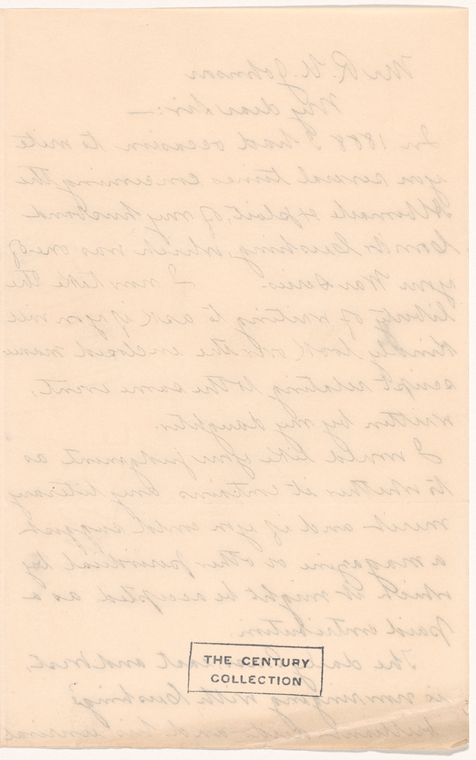 Mr R. U. Johnson
My dear Sir:—
In 1888 I had occasion to write
you several times concerning the
Albemarle exploit of my husband
Com'dr Cushing which was one of
your War Series. — I now take the
liberty of writing to ask if you will
kindly look over the enclosed manu
script relating to the same event,
written by my daughter.
I would like your judgment as
to whether it contains any literary
merit and if you could suggest
a magazine or other periodical by
which it might be accepted as a
paid contribution.
The daily and
is now with Cushing's
and his
THE CENTURY
COLLECTION